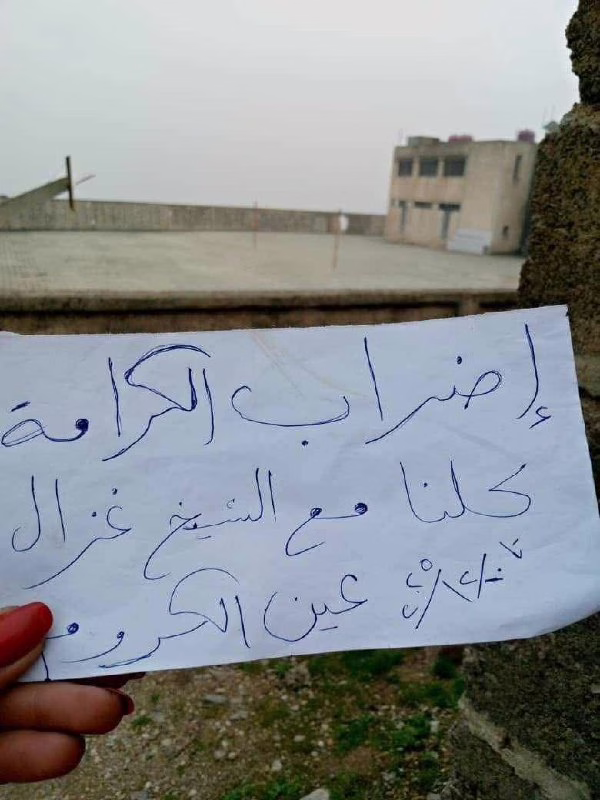 إضراب الكرامة
كلنا مع الشيخ غزال
عين الكروم